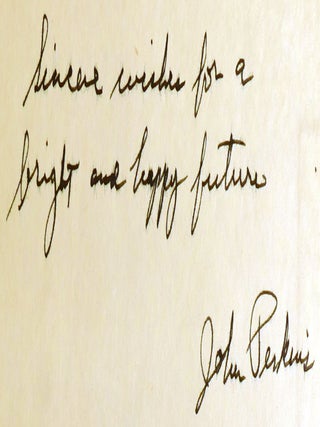 Sincere wishes for a
bright and happy future
John Perkins